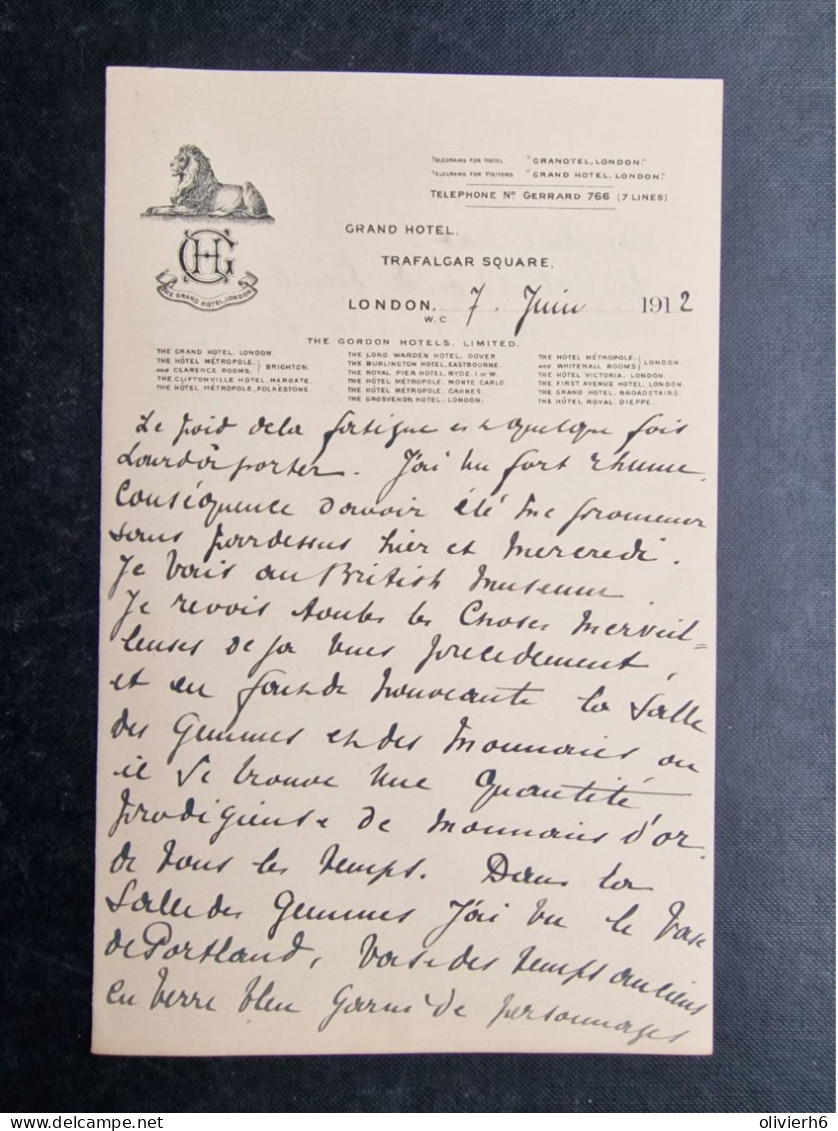 TELEGRAMS FOR HOTEL "GRANOTEL, LONDON."
TELEGRAMS FOR VISITORS "GRAND HOTEL, LONDON."
TELEPHONE No GERRARD 766 (7 LINES)
GHC
THE GRAND HOTEL, LONDON
GRAND HOTEL,
TRAFALGAR SQUARE,
LONDON, 7. Juin 1912
W.C
THE GORDON HOTELS, LIMITED.
THE GRAND HOTEL, LONDON.
THE HÔTEL MÉTROPOLE, AND CLARENCE ROOMS, } BRIGHTON.
THE CLIFTONVILLE HOTEL, MARGATE.
THE HÔTEL MÉTROPOLE, FOLKESTONE.
THE LORD WARDEN HOTEL, DOVER.
THE BURLINGTON HOTEL, EASTBOURNE.
THE ROYAL PIER HOTEL, RYDE, I. OF W.
THE HÔTEL MÉTROPOLE, MONTE CARLO.
THE HÔTEL MÉTROPOLE, CANNES.
THE GROSVENOR HOTEL, LONDON.
THE HÔTEL MÉTROPOLE, AND WHITEHALL ROOMS } LONDON
THE HÔTEL VICTORIA, LONDON.
THE FIRST AVENUE HOTEL, LONDON.
THE GRAND HOTEL, BROADSTAIRS.
THE HÔTEL ROYAL, DIEPPE.
Le poid de la fatigue est quelque fois
Lourd à porter. J'ai un fort rhume,
Conséquence d'avoir été me promener
sans pardessus hier et Mercredi.
Je vais au British Museum.
Je revois toutes les Choses Merveil=
leuses deja vues precedement,
et en fait de nouveauté la Salle
des Gemmes et des Monnaies, ou
il se trouve une Quantité
prodigieuse de Monnaies d'or
de tous les temps. Dans la
Salle des Gemmes J'ai vu le Vase
de Portland, Vase des temps anciens
en verre bleu garni de personnages
olivierh6